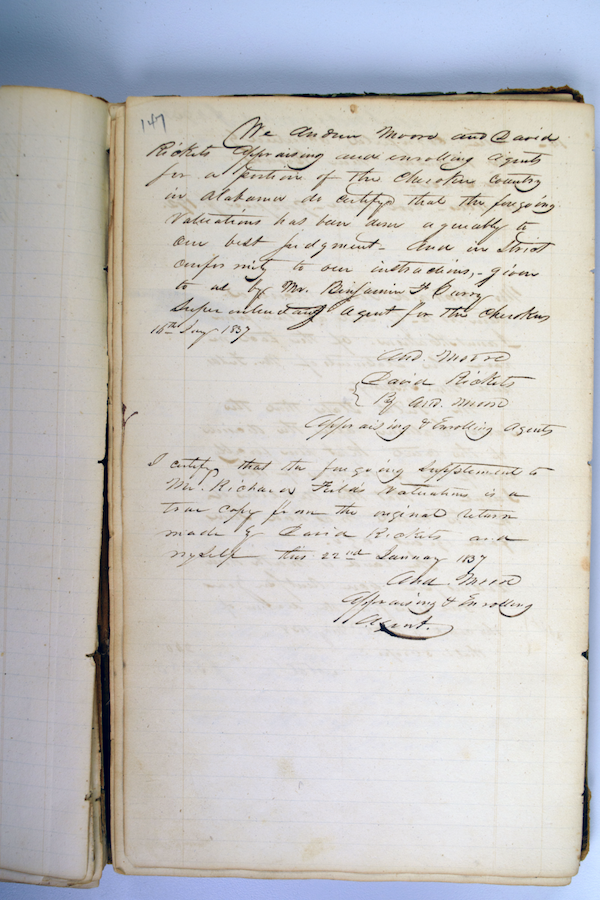 147
We Andrew Moore and David
Rickets Appraising and enrolling Agents
for a portion of the Cherokee Country
in Alabama do certify that the foregoing
Valuations has been done agreeably to
our best Judgment - And in Strict
conformity to our instructions, - given
to us by Mr. Benjamin F. Curry
Superintendant Agent for the Cherokees
16th Jany 1837
And. Moore
David Rickets
By And. Moore
Appraising & Enrolling Agents
I certify that the foregoing Supplement to
Mr. Richard Fields Valuations is a
true copy from the original return
made by David Rickets and
myself this 22nd January 1837
And. Moore
Appraising & Enrolling
Agent.